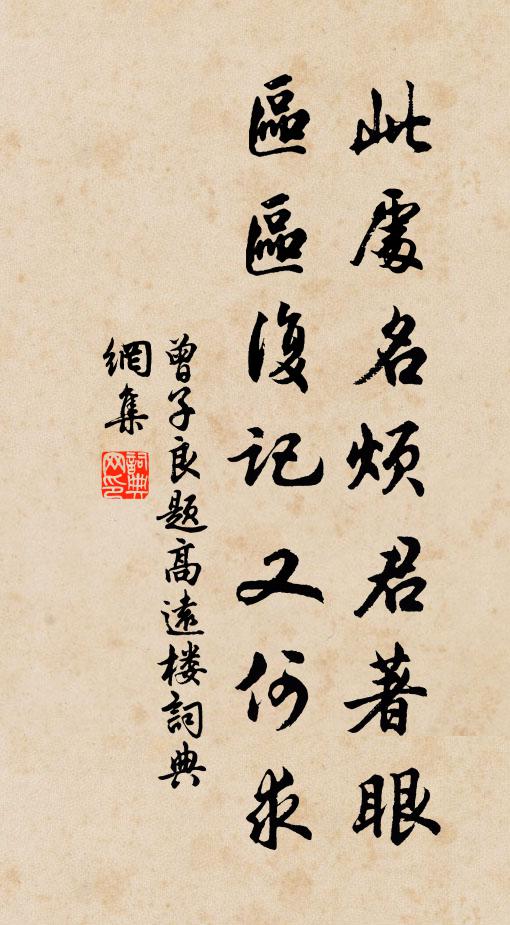 此處名煩君著眼
區區復記又何求
曾子良題高遠楼詞典
網集
詞典网印